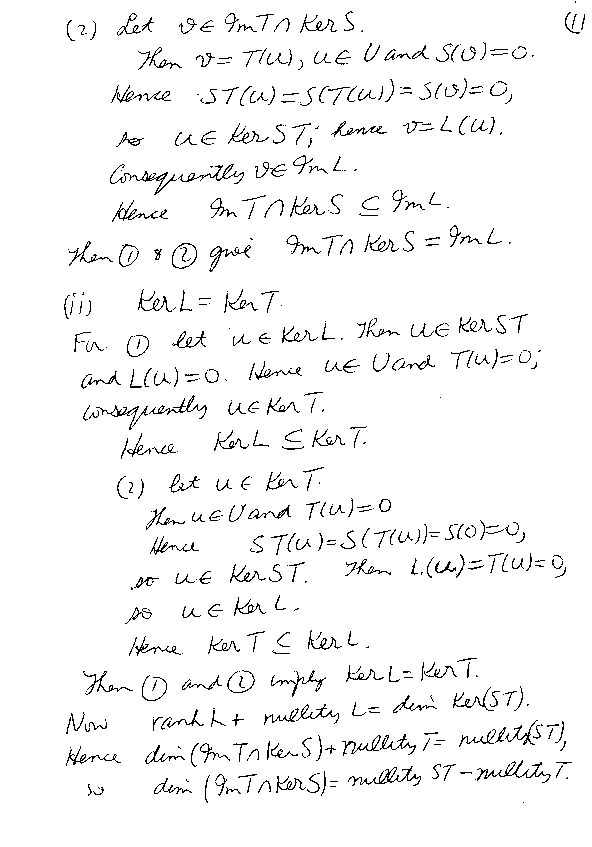 (2) Let v ∈ Im T ∩ Ker S. (11)
Then v = T(u), u ∈ U and S(v) = 0.
Hence ST(u) = S(T(u)) = S(v) = 0,
so u ∈ Ker ST; hence v = L(u).
Consequently v ∈ Im L.
Hence Im T ∩ Ker S ⊆ Im L.
Then ① & ② give Im T ∩ Ker S = Im L.
(ii) Ker L = Ker T.
For ① let u ∈ Ker L. Then u ∈ Ker ST
and L(u) = 0. Hence u ∈ U and T(u) = 0;
consequently u ∈ Ker T.
Hence Ker L ⊆ Ker T.
(2) let u ∈ Ker T.
Then u ∈ U and T(u) = 0
Hence ST(u) = S(T(u)) = S(0) = 0,
so u ∈ Ker ST. Then L(u) = T(u) = 0,
so u ∈ Ker L.
Hence Ker T ⊆ Ker L.
Then ① and ② imply Ker L = Ker T.
Now rank L + nullity L = dim Ker(ST).
Hence dim (Im T ∩ Ker S) + nullity T = nullity(ST),
so dim (Im T ∩ Ker S) = nullity ST − nullity T.